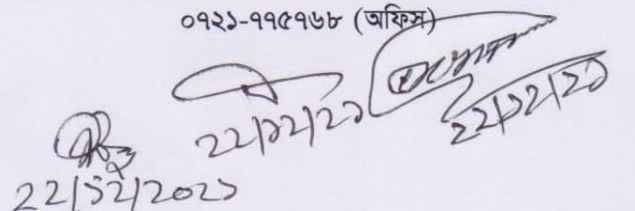 ০৭২১-৭৭৫৭৬৮ (অফিস)
২২/১২/২১
২২/১২/২১
২২/১২/২০২১